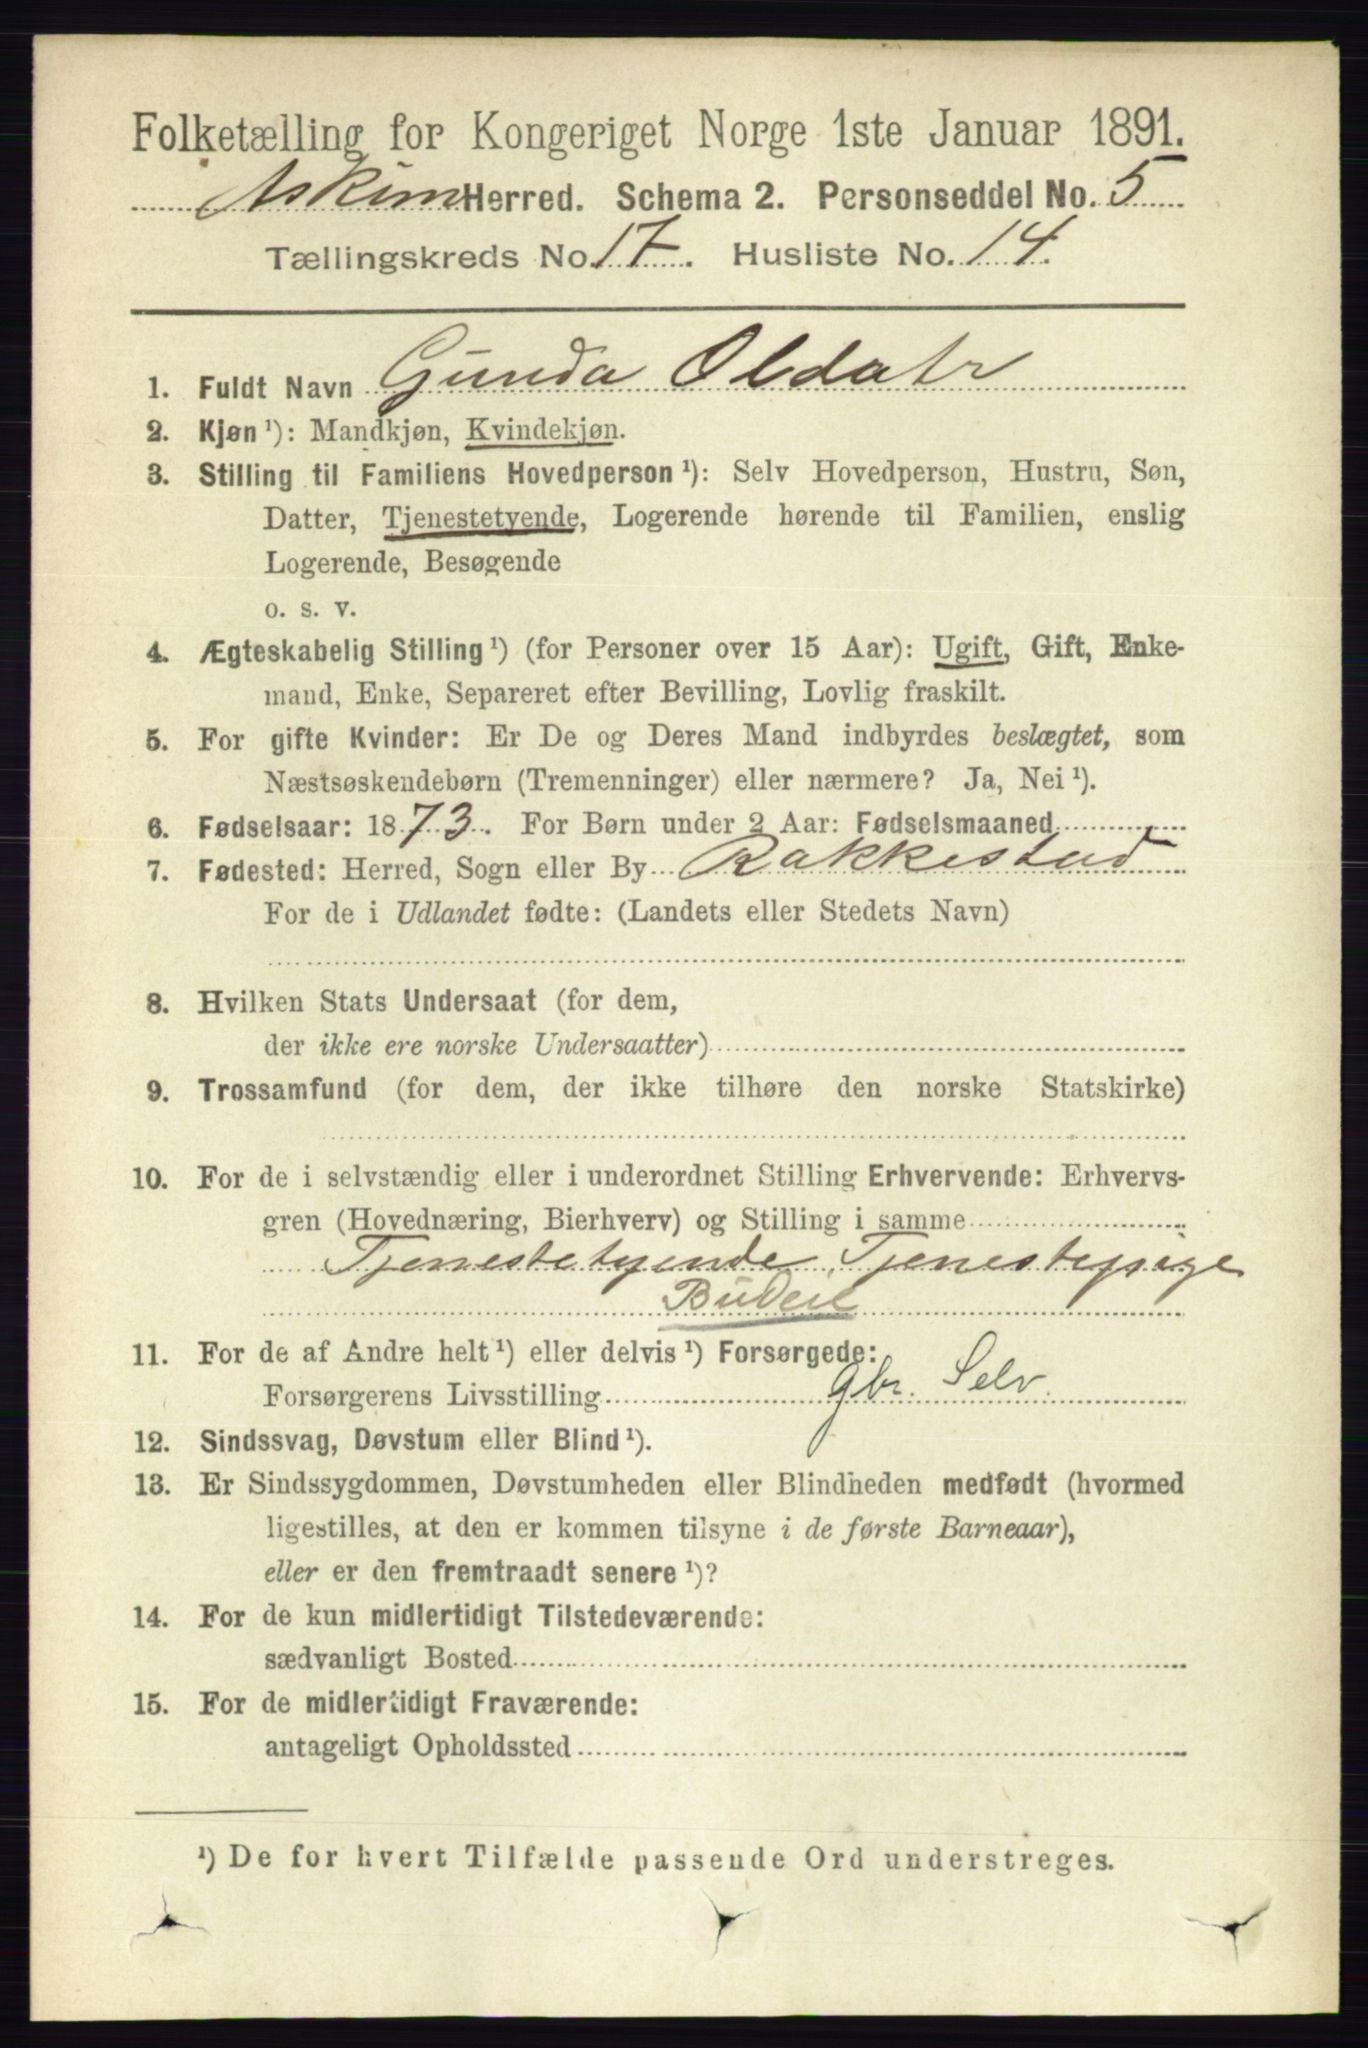 Folketælling for Kongeriget Norge 1ste Januar 1891.
Askim Herred. Schema 2. Personseddel No. 5
Tællingskreds No. 17. Husliste No. 14.
1. Fuldt Navn Gunda Oldatr
2. Kjøn ¹): Mandkjøn, Kvindekjøn.
3. Stilling til Familiens Hovedperson ¹): Selv Hovedperson, Hustru, Søn,
Datter, Tjenestetyende, Logerende hørende til Familien, enslig
Logerende, Besøgende
o. s. v.
4. Ægteskabelig Stilling ¹) (for Personer over 15 Aar): Ugift, Gift, Enke-
mand, Enke, Separeret efter Bevilling, Lovlig fraskilt.
5. For gifte Kvinder: Er De og Deres Mand indbyrdes beslægtet, som
Næstsøskendebørn (Tremenninger) eller nærmere? Ja, Nei ¹).
6. Fødselsaar: 1873. For Børn under 2 Aar: Fødselsmaaned
7. Fødested: Herred, Sogn eller By Rakkestad
For de i Udlandet fødte: (Landets eller Stedets Navn)
8. Hvilken Stats Undersaat (for dem,
der ikke ere norske Undersaatter)
9. Trossamfund (for dem, der ikke tilhøre den norske Statskirke)
10. For de i selvstændig eller i underordnet Stilling Erhvervende: Erhvervs-
gren (Hovednæring, Bierhverv) og Stilling i samme
Tjenestetyende, Tjenestepige
Budeie
11. For de af Andre helt ¹) eller delvis ¹) Forsørgede:
Forsørgerens Livsstilling gbr. Selv.
12. Sindssvag, Døvstum eller Blind ¹).
13. Er Sindssygdommen, Døvstumheden eller Blindheden medfødt (hvormed
ligestilles, at den er kommen tilsyne i de første Barneaar),
eller er den fremtraadt senere ¹)?
14. For de kun midlertidigt Tilstedeværende:
sædvanligt Bosted
15. For de midlertidigt Fraværende:
antageligt Opholdssted
¹) De for hvert Tilfælde passende Ord understreges.